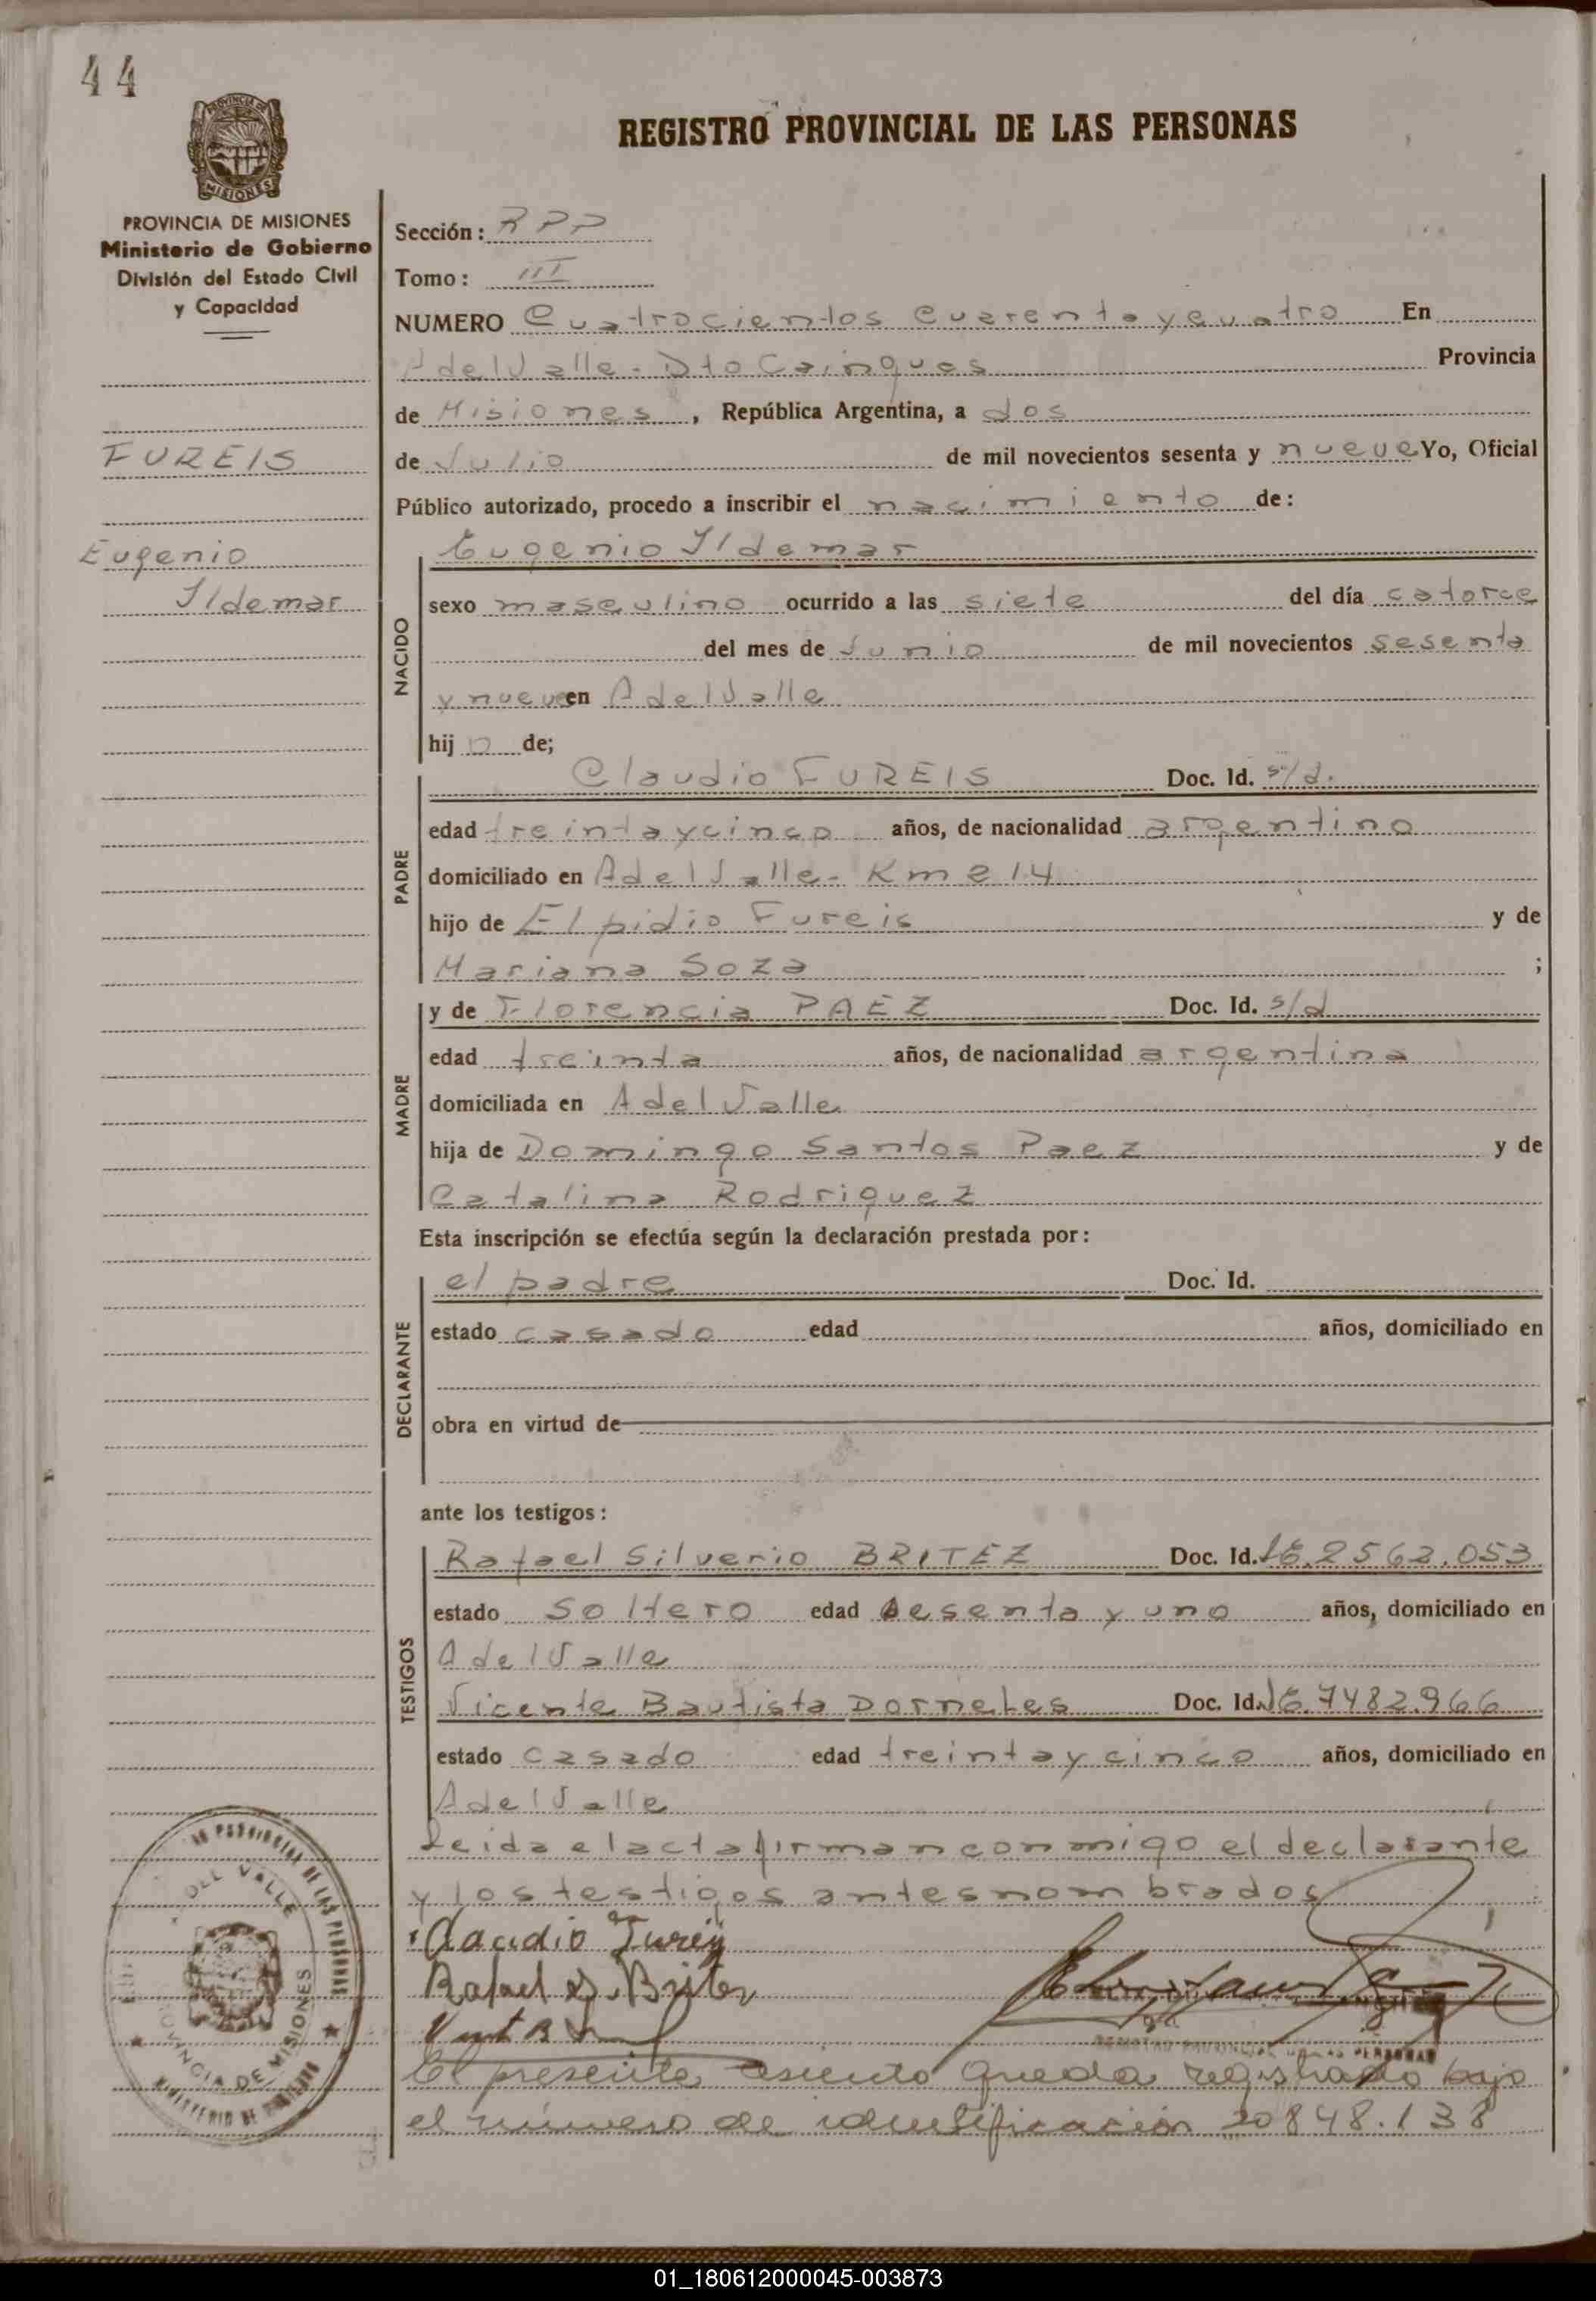 44
REGISTRO PROVINCIAL DE LAS PERSONAS
PROVINCIA DE MISIONES
Ministerio de Gobierno
División del Estado Civil
y Capacidad
FUREIS
Eugenio
Ildemar
Sección: RPP
Tomo: III
NUMERO Cuatrocientos Cuarenta y cuatro En
A del Valle - Dto Cainguas Provincia
de Misiones, República Argentina, a dos
de Julio de mil novecientos sesenta y nueve Yo, Oficial
Público autorizado, procedo a inscribir el nacimiento de:
NACIDO
Eugenio Ildemar
sexo masculino ocurrido a las siete del día catorce
del mes de Junio de mil novecientos sesenta
y nueve en A del Valle
hijo de;
PADRE
Claudio FUREIS Doc. Id. s/d.
edad treinta y cinco años, de nacionalidad argentino
domiciliado en A del Valle - Km 214
hijo de Elpidio Fureis y de
Mariana Soza ;
MADRE
y de Florencia PAEZ Doc. Id. s/d
edad treinta años, de nacionalidad argentina
domiciliada en A del Valle
hija de Domingo Santos Paez y de
Catalina Rodriguez
Esta inscripción se efectúa según la declaración prestada por:
DECLARANTE
el padre Doc. Id.
estado casado edad años, domiciliado en
obra en virtud de
ante los testigos:
TESTIGOS
Rafael Silverio BRITEZ Doc. Id. 2562.053
estado Soltero edad sesenta y uno años, domiciliado en
A del Valle
Vicente Bautista Dorneles Doc. Id. 7482.966
estado Casado edad treinta y cinco años, domiciliado en
A del Valle
Leida el acta firman conmigo el declarante
y los testigos antes nombrados
Claudio Fureis
Rafael S. Britez
REGISTRO PROVINCIAL DE LAS PERSONAS
DEL VALLE
PROVINCIA DE MISIONES
MINISTERIO DE GOBIERNO
El presente asiento queda registrado bajo
el número de identificación 20848.138
01_180612000045-003873